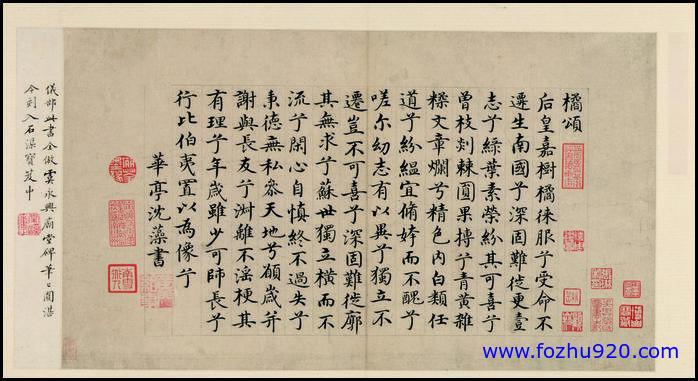 橘頌
后皇嘉樹橘徠服兮受命不
遷生南國兮深固難徙更壹
志兮綠葉素榮紛其可喜兮
曾枝剡棘圓果摶兮青黃雜
糅文章爛兮精色内白類任
道兮紛緼宜脩姱而不醜兮
嗟尔幼志有以異兮獨立不
遷豈不可喜兮深固難徙廓
其無求兮蘇世獨立橫而不
流兮閑心自慎終不過失兮
秉德無私參天地兮願歲并
謝與長友兮淑離不淫梗其
有理兮年歲雖少可師長兮
行比伯夷置以為像兮
華亭沈藻書
儀部此書全倣虞永興廟堂碑筆筆圓湛
今刻入石渠寶笈中
www.fozhu920.com